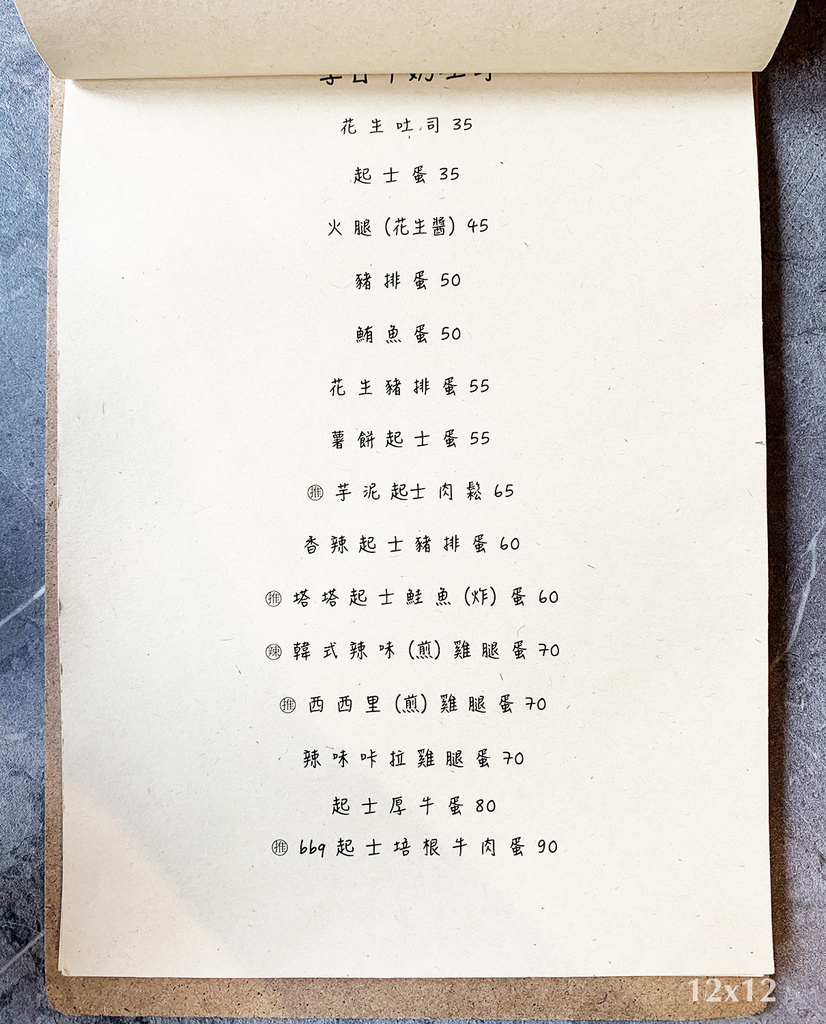 花生吐司 35
起士蛋 35
火腿 (花生醬) 45
豬排蛋 50
鮪魚蛋 50
花生豬排蛋 55
薯餅起士蛋 55
㊙推 芋泥起士肉鬆 65
香辣起士豬排蛋 60
推 塔塔起士鮭魚 (炸) 蛋 60
辣 韓式辣味 (煎) 雞腿蛋 70
推 西西里 (煎) 雞腿蛋 70
辣味咔拉雞腿蛋 70
起士厚牛蛋 80
推 bbq起士培根牛肉蛋 90
12x12